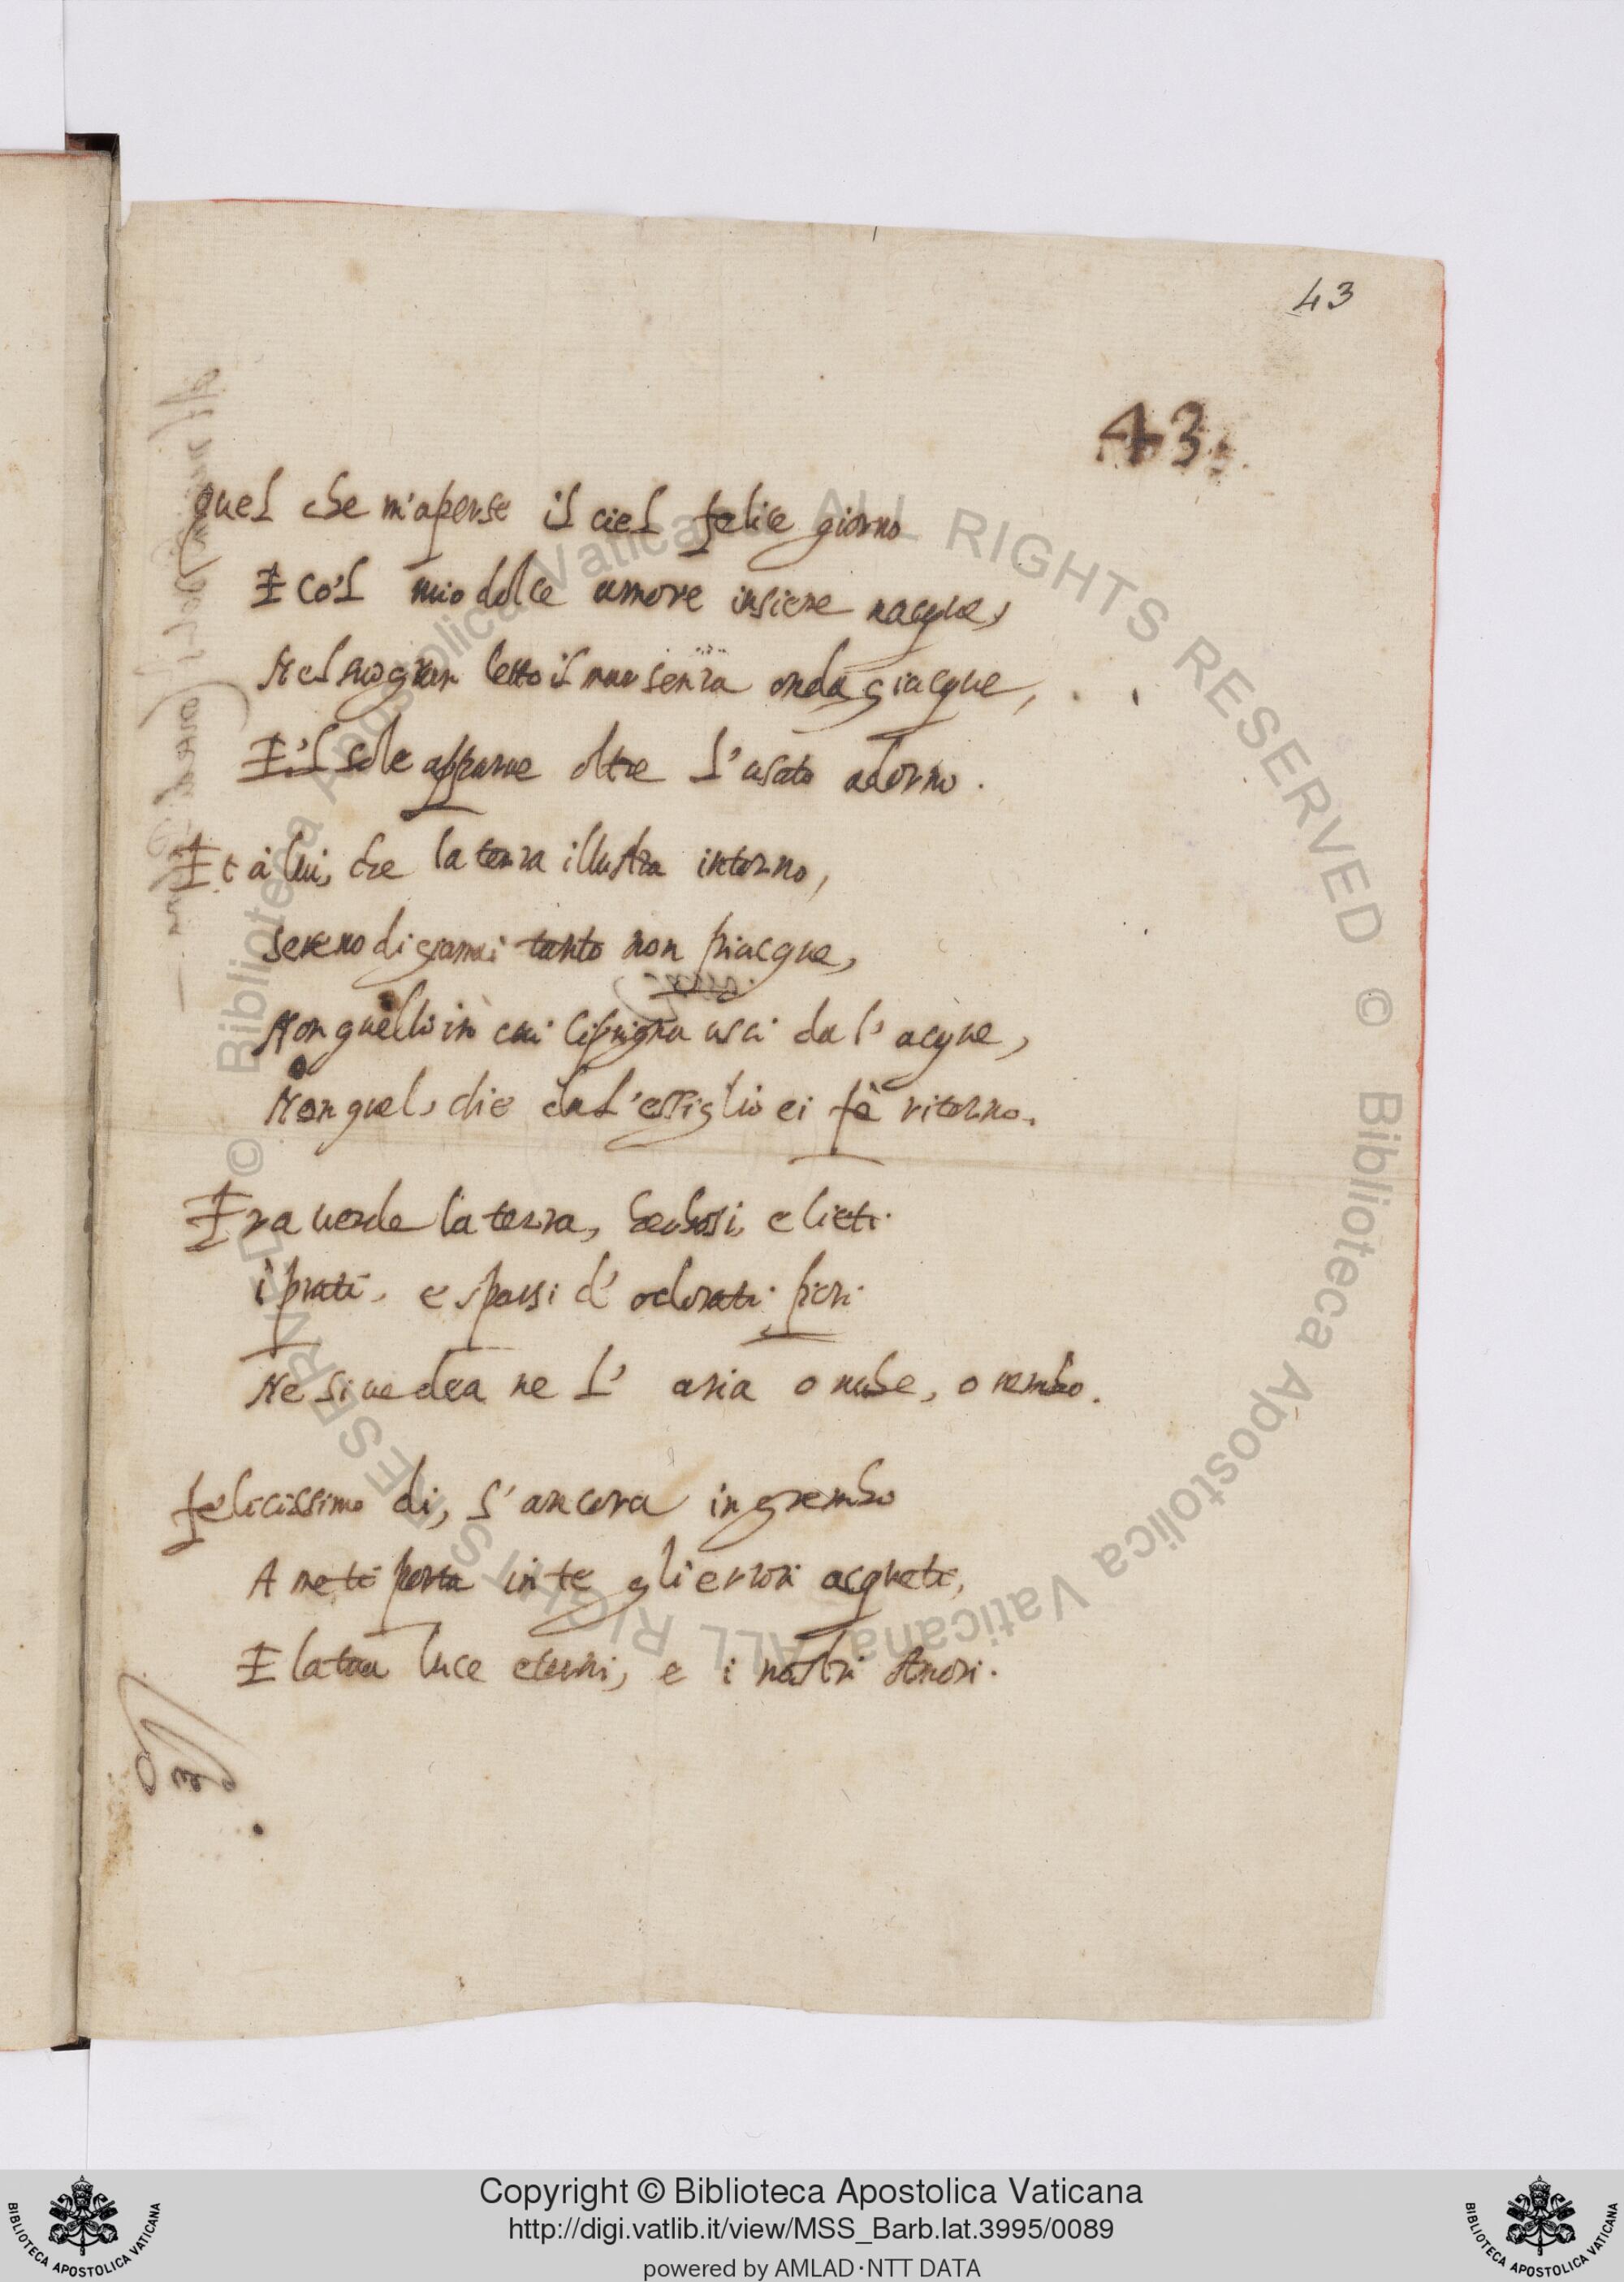 43
43.
Quel che m'aperse il ciel felice giorno
E co'l mio dolce amore insieme nacque,
Nel suo gran letto il mar senza onda giacque,
E'l sole apparue oltre l'usato adorno.
Et à lui, che la terra illustra intorno,
sereno di giamai tanto non piacque,
Non quello in cui Ciprigna usci da l'acque,
Non quel, che da l'essiglio ei fè ritorno.
Era uerde la terra, herbosi, e lieti
i prati, e sparsi d'odorati fiori
Ne si uedea ne l'aria o nube, o nembo.
felicissimo di, s'ancora in grembo
A me ti porta in te gli errori acqueti,
E la tua luce eterni, e i nostri Amori.
© Biblioteca Apostolica Vaticana ALL RIGHTS RESERVED © Biblioteca Apostolica Vaticana ALL RIGHTS RESERVED
BIBLIOTECA APOSTOLICA VATICANA
Copyright © Biblioteca Apostolica Vaticana
http://digi.vatlib.it/view/MSS_Barb.lat.3995/0089
powered by AMLAD·NTT DATA
BIBLIOTECA APOSTOLICA VATICANA